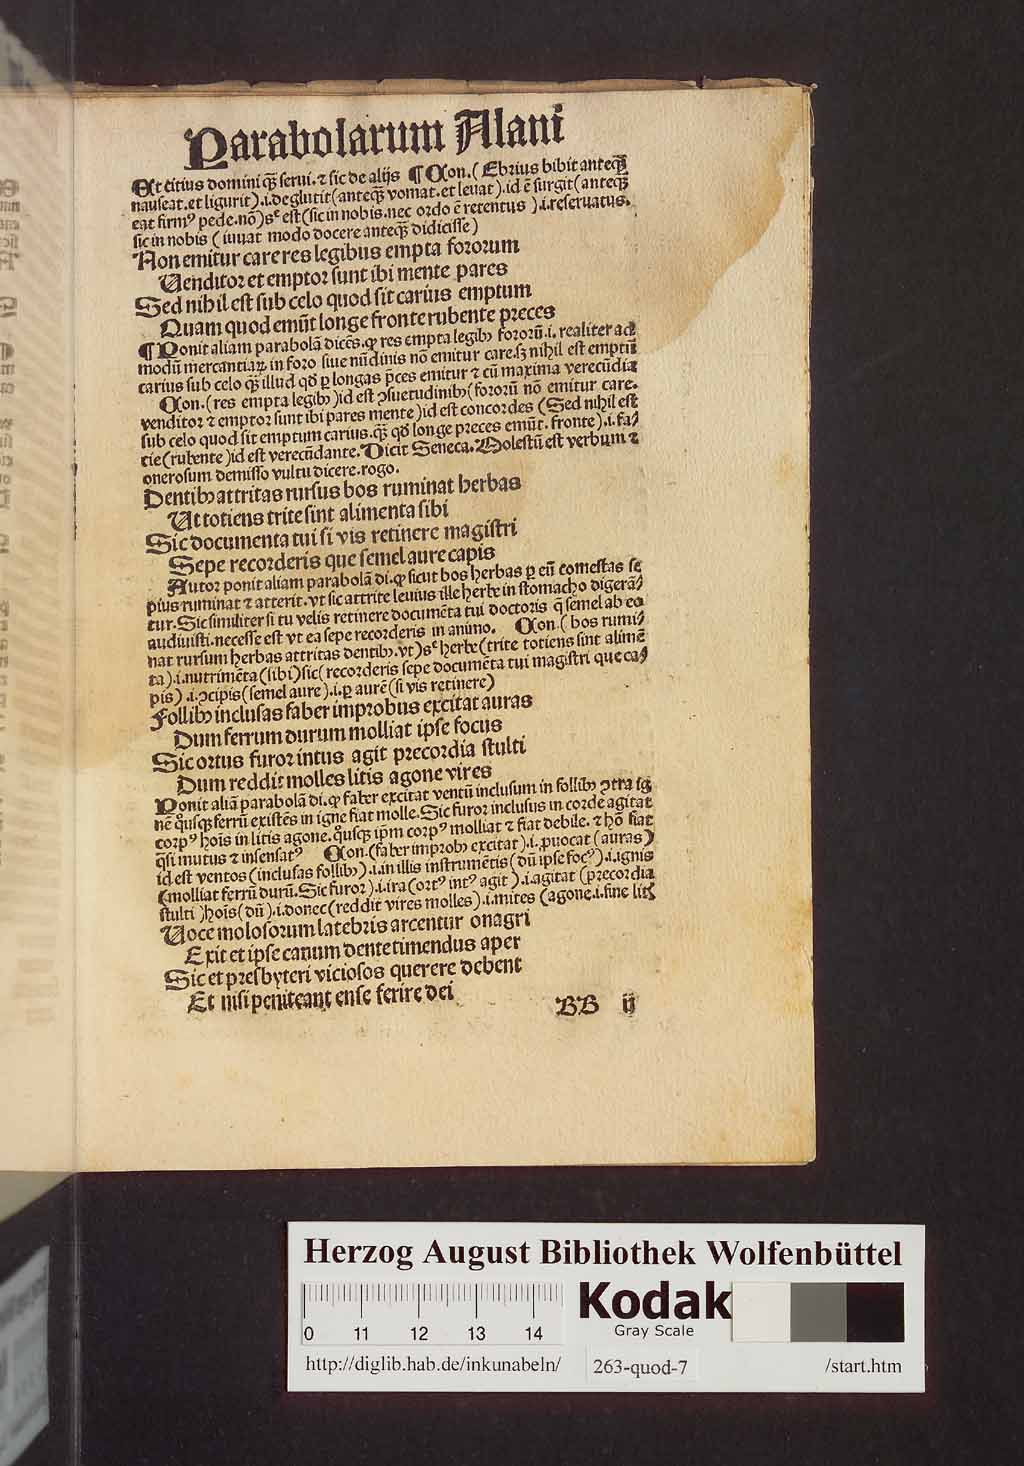 Parabolarum Alani
Et citius domini q̃ȝ serui. ⁊ sic de alijs ¶ Con. ( Ebrius bibit anteq̃ȝ
nauseat. et ligurit ) .i. deglutit ( anteq̃ȝ vomat. et leuat ) .id ē surgit ( anteq̃ȝ
eat firmꝰ pede. nō ) sᶜ est ( sic in nobis. nec ordo ē retentus ) .i. reseruatus.
sic in nobis ( iuuat modo docere anteq̃ȝ didicisse )
Non emitur care res legibus empta fororum
Uenditor et emptor sunt ibi mente pares
Sed nihil est sub celo quod sit carius emptum
Quam quod emūt longe fronte rubente preces
¶ Ponit aliam parabolā dicēs. ꝙ res empta legibꝫ fororū .i. realiter ad
modū mercantiaꝝ in foro siue nūdinis nō emitur care. sꝫ nihil est emptū
carius sub celo q̃ȝ illud qḋ ꝑ longas p̄ces emitur ⁊ cū maxima verecūdia
Con. ( res empta legibꝫ ) id est ꝯsuetudinibꝫ ( fororū nō emitur care.
venditor ⁊ emptor sunt ibi pares mente ) id est concordes ( Sed nihil est
sub celo quod sit emptum carius. q̃ȝ qḋ longe preces emūt. fronte ) .i. fa⸗
cie ( rubente ) id est verecūdante. Dicit Seneca. Molestū est verbum ⁊
onerosum demisso vultu dicere. rogo.
Dentibꝫ attritas rursus bos ruminat herbas
Ut totiens trite sint alimenta sibi
Sic documenta tui si vis retinere magistri
Sepe recorderis que semel aure capis
Autor ponit aliam parabolā di. ꝙ sicut bos herbas ꝑ eū comestas se
pius ruminat ⁊ atterit. vt sic attrite leuius ille herbe in stomacho digerā⸗
tur. Sic similiter si tu velis retinere documēta tui doctoris q̄ semel ab eo
audiuisti. necesse est vt ea sepe recorderis in animo. Con. ( bos rumi⸗
nat rursum herbas attritas dentibꝫ. vt ) sᶜ herbe ( trite totiens sint alimē
ta ) .i. nutrimēta ( sibi ) sic ( recorderis sepe documēta tui magistri que ca⸗
pis ) .i. ꝯcipis ( semel aure ) .i. ꝑ aurē ( si vis retinere )
Follibꝫ inclusas faber improbus excitat auras
Dum ferrum durum molliat ipse focus
Sic ortus furor intus agit precordia stulti
Dum reddit molles litis agone vires
Ponit aliā parabolā di. ꝙ faber excitat ventū inclusum in follibꝫ ꝯtra ig
nē quͦusqȝ ferrū existēs in igne fiat molle. Sic furor inclusus in corde agitat
corpꝰ hoīs in litis agone. quͦusqȝ ip̄m corpꝰ molliat ⁊ fiat debile. ⁊ hō fiat
q̄si mutus ⁊ insensatꝰ Con. ( faber improbꝫ excitat ) .i. ꝓuocat ( auras )
id est ventos ( inclusas follibꝫ ) .i. in illis instrumētis ( dū ipse focꝰ ) .i. ignis
( molliat ferrū durū. Sic furor ) .i. ira ( ortꝰ intꝰ agit ) .i. agitat ( precordia
stulti ) hoīs ( dū ) .i. donec ( reddit vires molles ) .i. mites ( agone .i. fine litꝭ
Uoce molosorum latebris arcentur onagri
Exit et ipse canum dente timendus aper
Sic et presbyteri viciosos querere debent
Et nisi peniteant ense ferire dei
BB ij
Herzog August Bibliothek Wolfenbüttel
0 11 12 13 14
Kodak
Gray Scale
http://diglib.hab.de/inkunabeln/ 263-quod-7 /start.htm